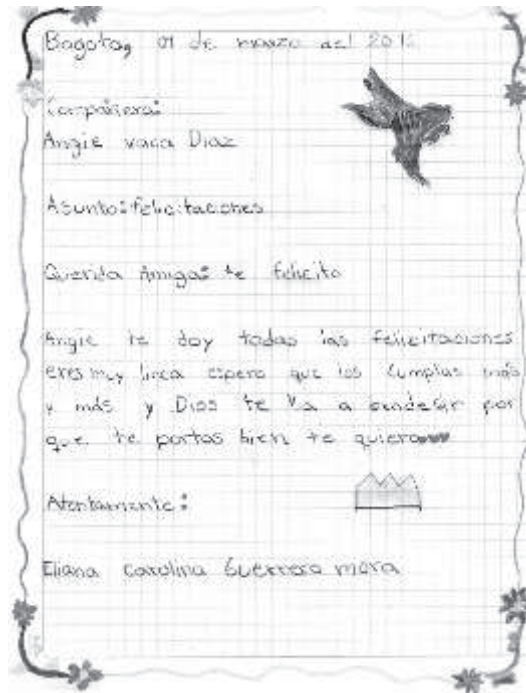 Bogota, 01 de marzo del 201
Compañera:
Angie vaca Diaz
Asunto: felicitaciones
Querida Amiga: te felicito
Angie te doy todas las felicitaciones
eres muy linda espero que los cumplas más
y más y Dios te va a bendecir por
que te portas bien te quiero
Atentamente:
Eliana carolina Guerrero mora